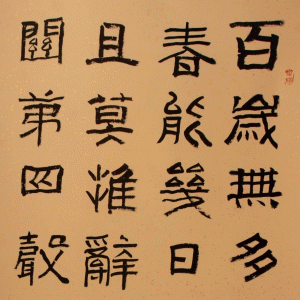 百歲無多
春能幾日
且莫推辭
關弟四聲